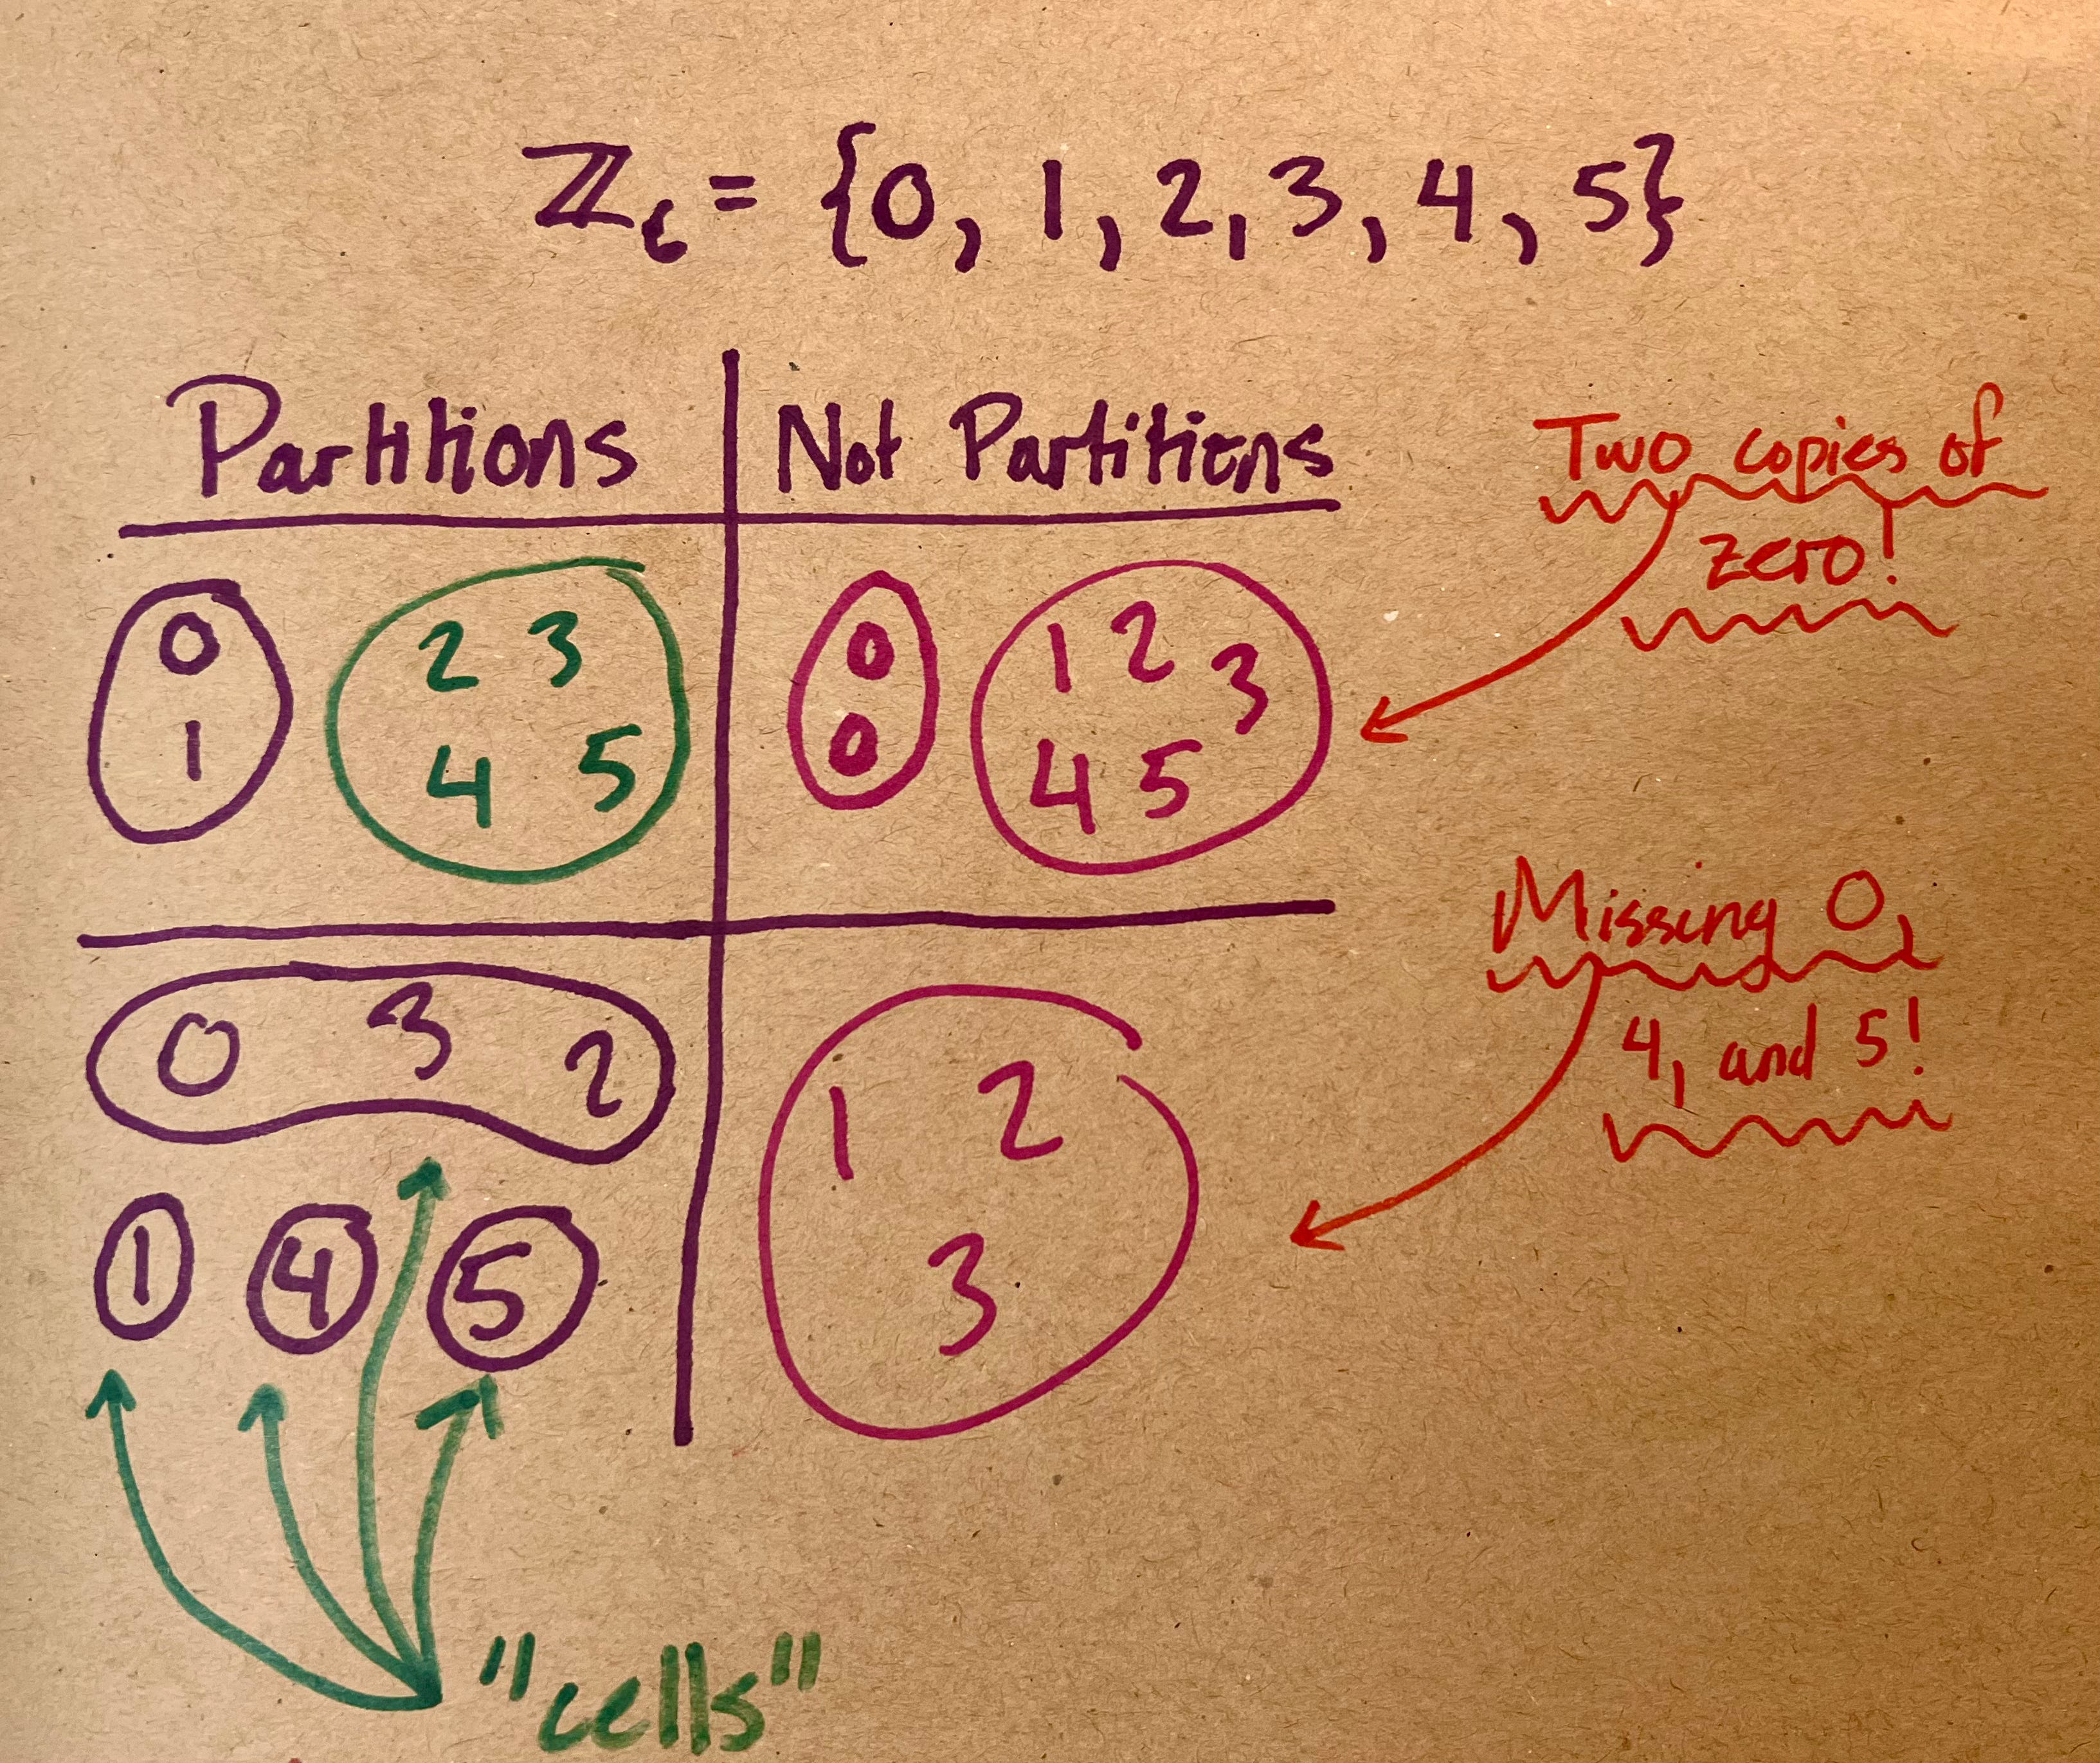 ℤ₆ = {0, 1, 2, 3, 4, 5}
Partitions
Not Partitions
Two copies of
zero!
0
1
2 3
4 5
0
0
1 2 3
4 5
Missing 0,
4, and 5!
0 3 2
1 4 5
1 2
3
"cells"